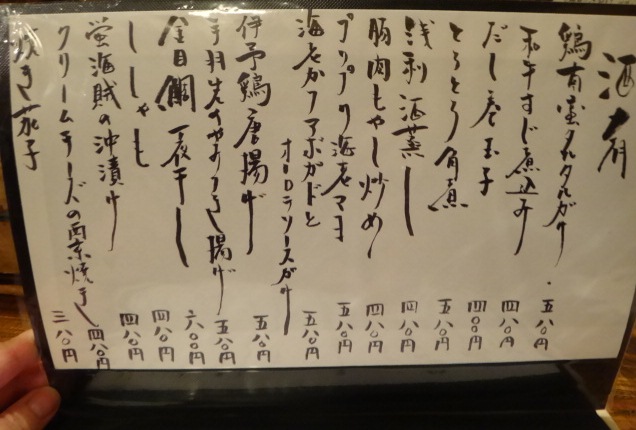 酒肴
鶏南蛮タルタルがけ 五八〇円
和牛すじ煮込み 四八〇円
だし巻玉子 四〇〇円
とろとろ角煮 五八〇円
浅利酒蒸し 四八〇円
豚肉もやし炒め 四八〇円
プリプリ海老マヨ 五八〇円
海老かつアボガドと
オーロラソースがけ 五八〇円
伊予鶏唐揚げ 五八〇円
手羽先のやみつき揚げ 五八〇円
金目鯛一夜干し 六八〇円
ししゃも 四八〇円
蛍海賊の沖漬け 四八〇円
クリームチーズの西京焼き 四八〇円
炊き茄子 三八〇円